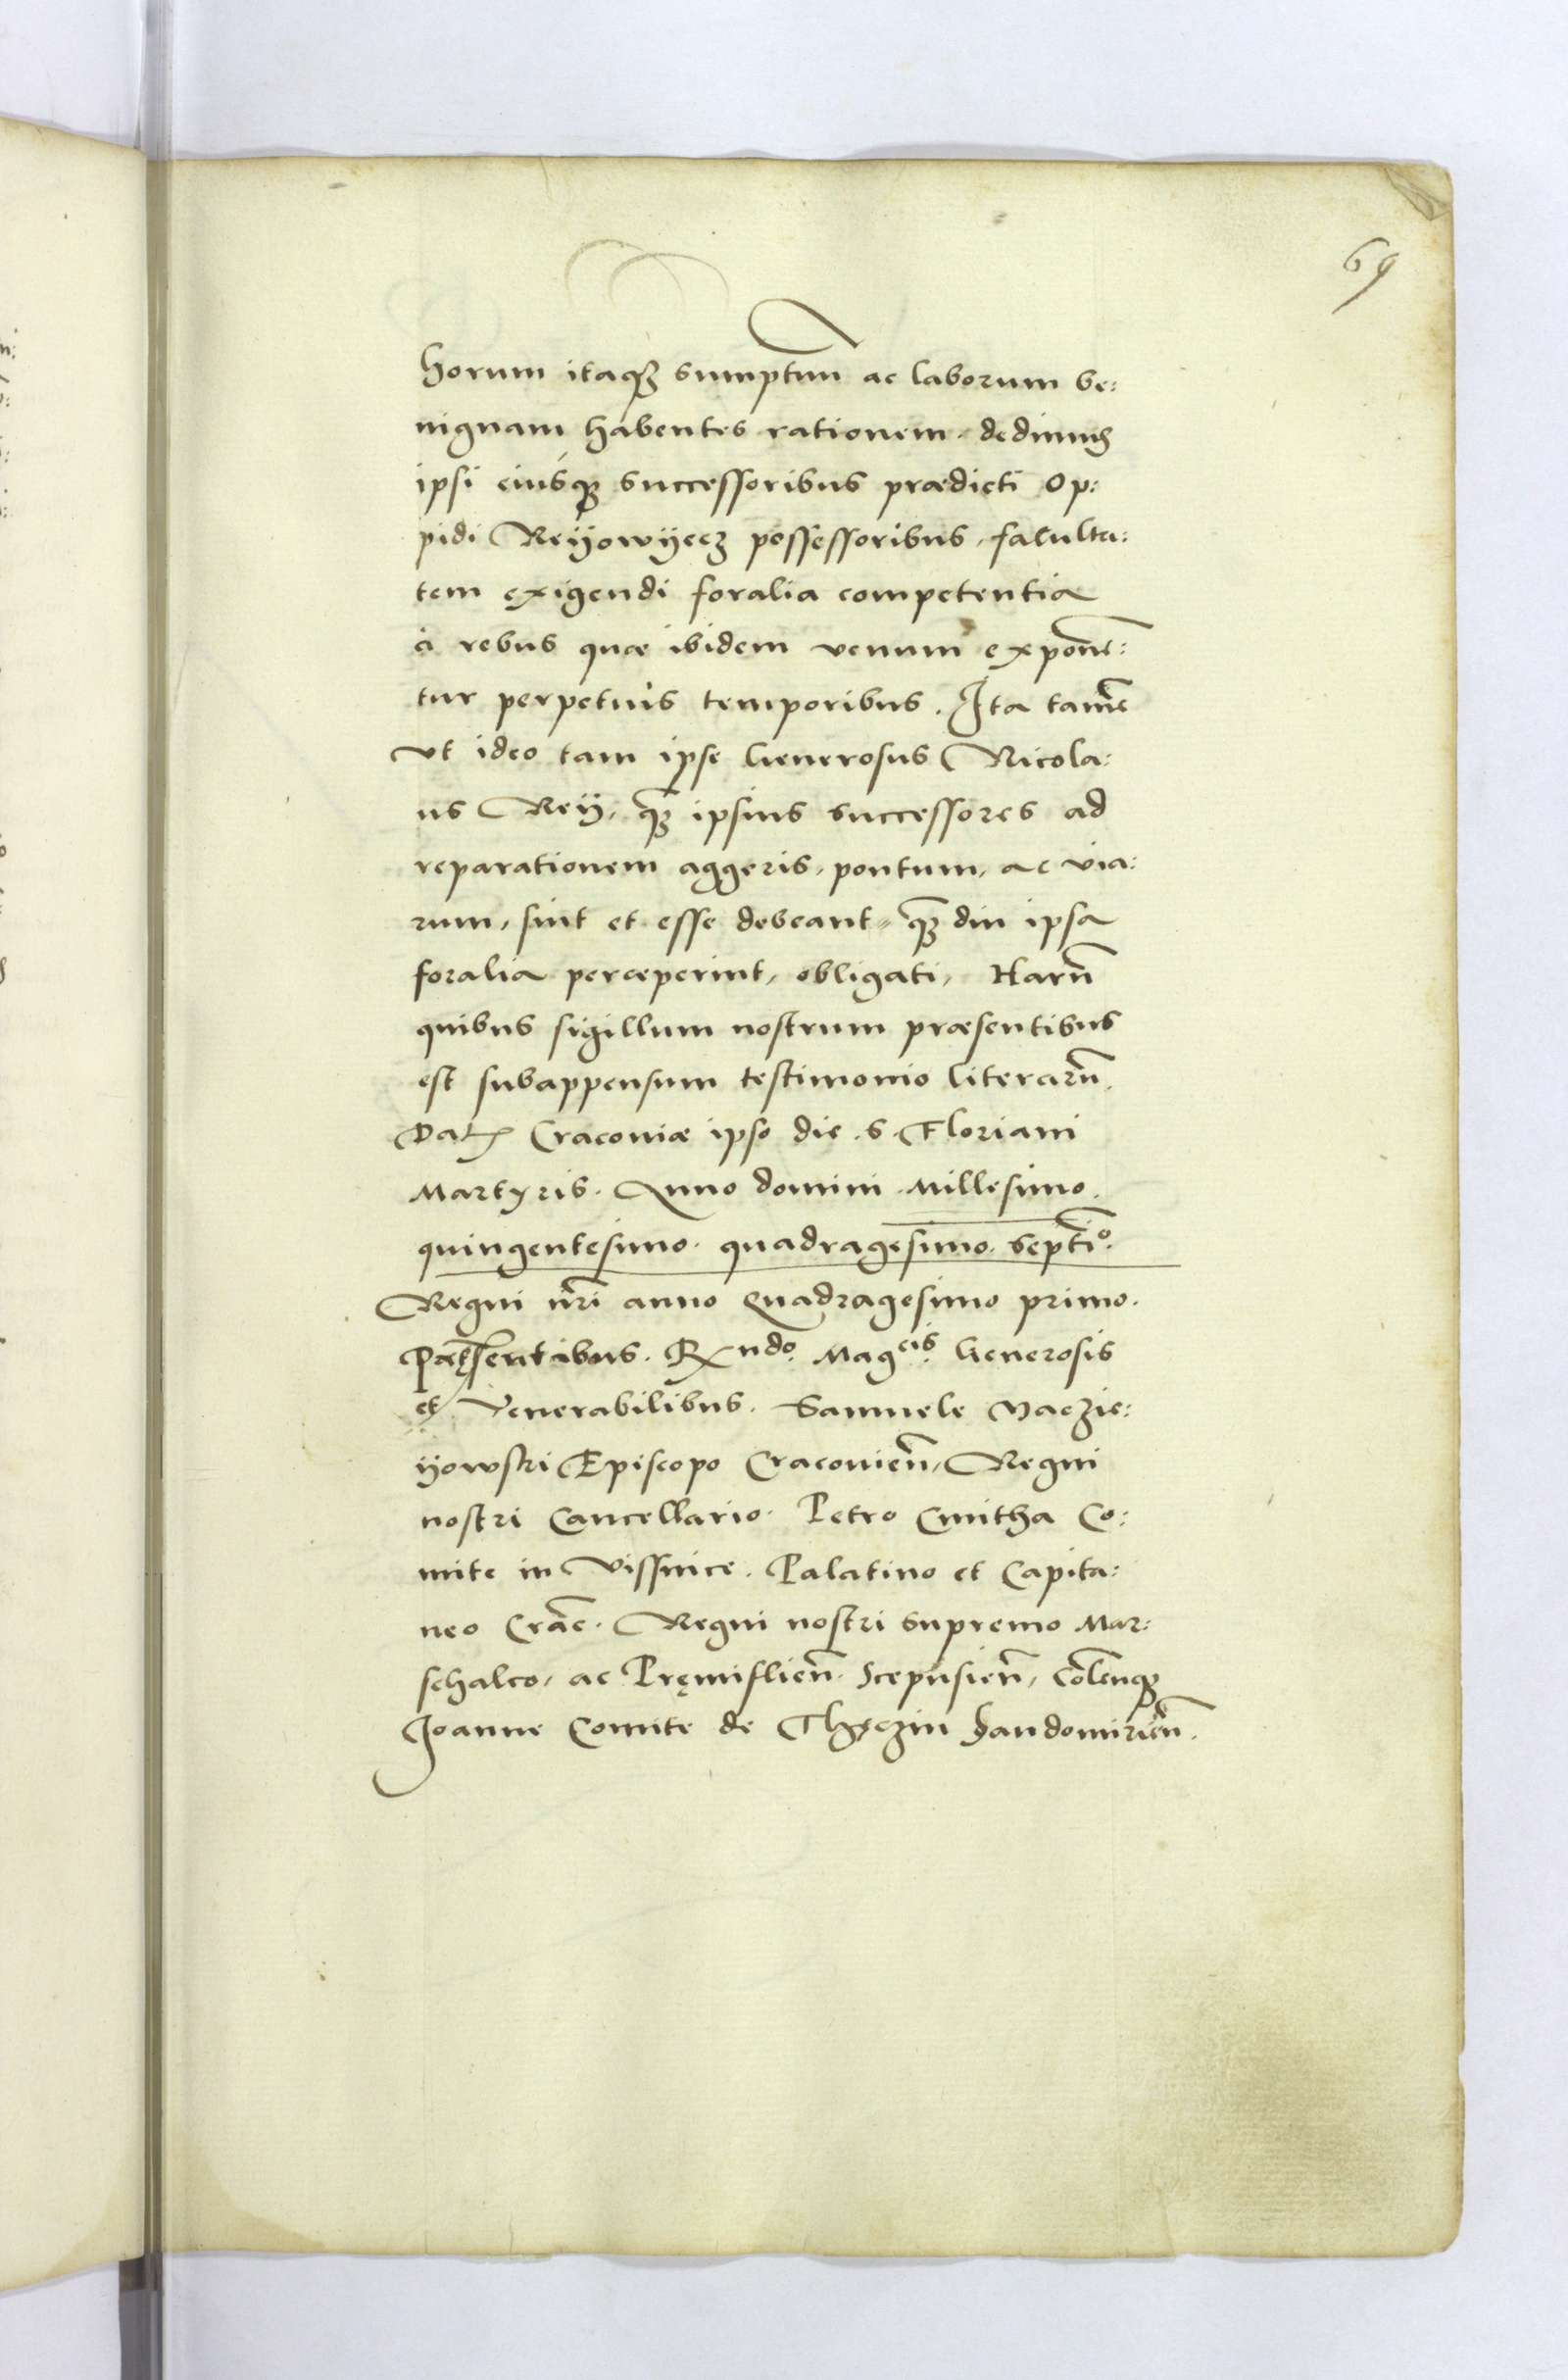 69
Horum itaqꝫ sumptuu ac laborum be:
nignam habentes rationem. dedimus
ipsi eiusqꝫ successoribus prædicti Op:
pidi Reÿowÿecz possessoribus, faculta:
tem exigendi foralia competentia
à rebus quæ ibidem venum exponē:
tur perpetuis temporibus. Ita tamē
vt ideo tam ipse Generosus Nicola:
us Reÿ, qꝫ̃ ipsius successores ad
reparationem aggeris, pontium, ac via:
rum, sint et esse debeant, qꝫ̃ diu ipsa
foralia perceperint, obligati, Harū
quibus sigillum nostrum præsentibus
est subappensum testimonio literarū.
Datꝭ Cracoviæ ipso die .S. Floriani
Martyris. Anno domini Millesimo.
quingentesimo. quadragesimo. septīo.
Regni nr̄i anno Quadragesimo primo.
Præsentibus. Rx̄ndo. Magcis. Generosis
et Venerabilibus. Samuele Maczie:
ÿowski Episcopo Cracovien̄, Regni
nostri Cancellario. Petro Cmitha Co:
mite in Vissnice. Palatino et Capita:
neo Crac̄. Regni nostri Supremo Mar:
schalco, ac Pręmislien̄. Scepusien̄, Colen̄qꝫ
Joanne Comite de Thęczin Sandomirien̄.